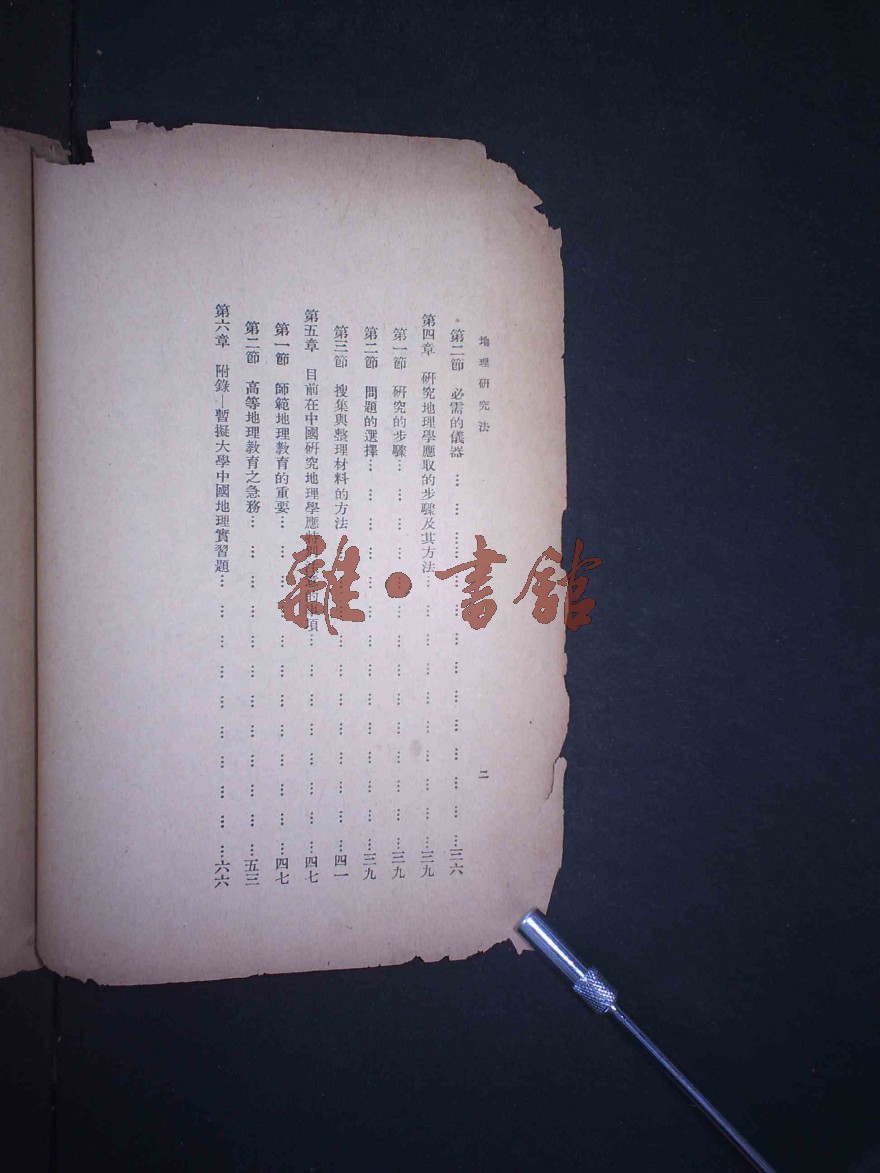 地理研究法
二
第二節　必需的儀器……三六
第四章　研究地理學應取的步驟及其方法……三九
第一節　研究的步驟……三九
第二節　問題的選擇……三九
第三節　搜集與整理材料的方法……四一
第五章　目前在中國研究地理學應特別注意的事項……四七
第一節　師範地理教育的重要……四七
第二節　高等地理教育之急務……五三
第六章　附錄—暫擬大學中國地理實習題……六六
雜·書館